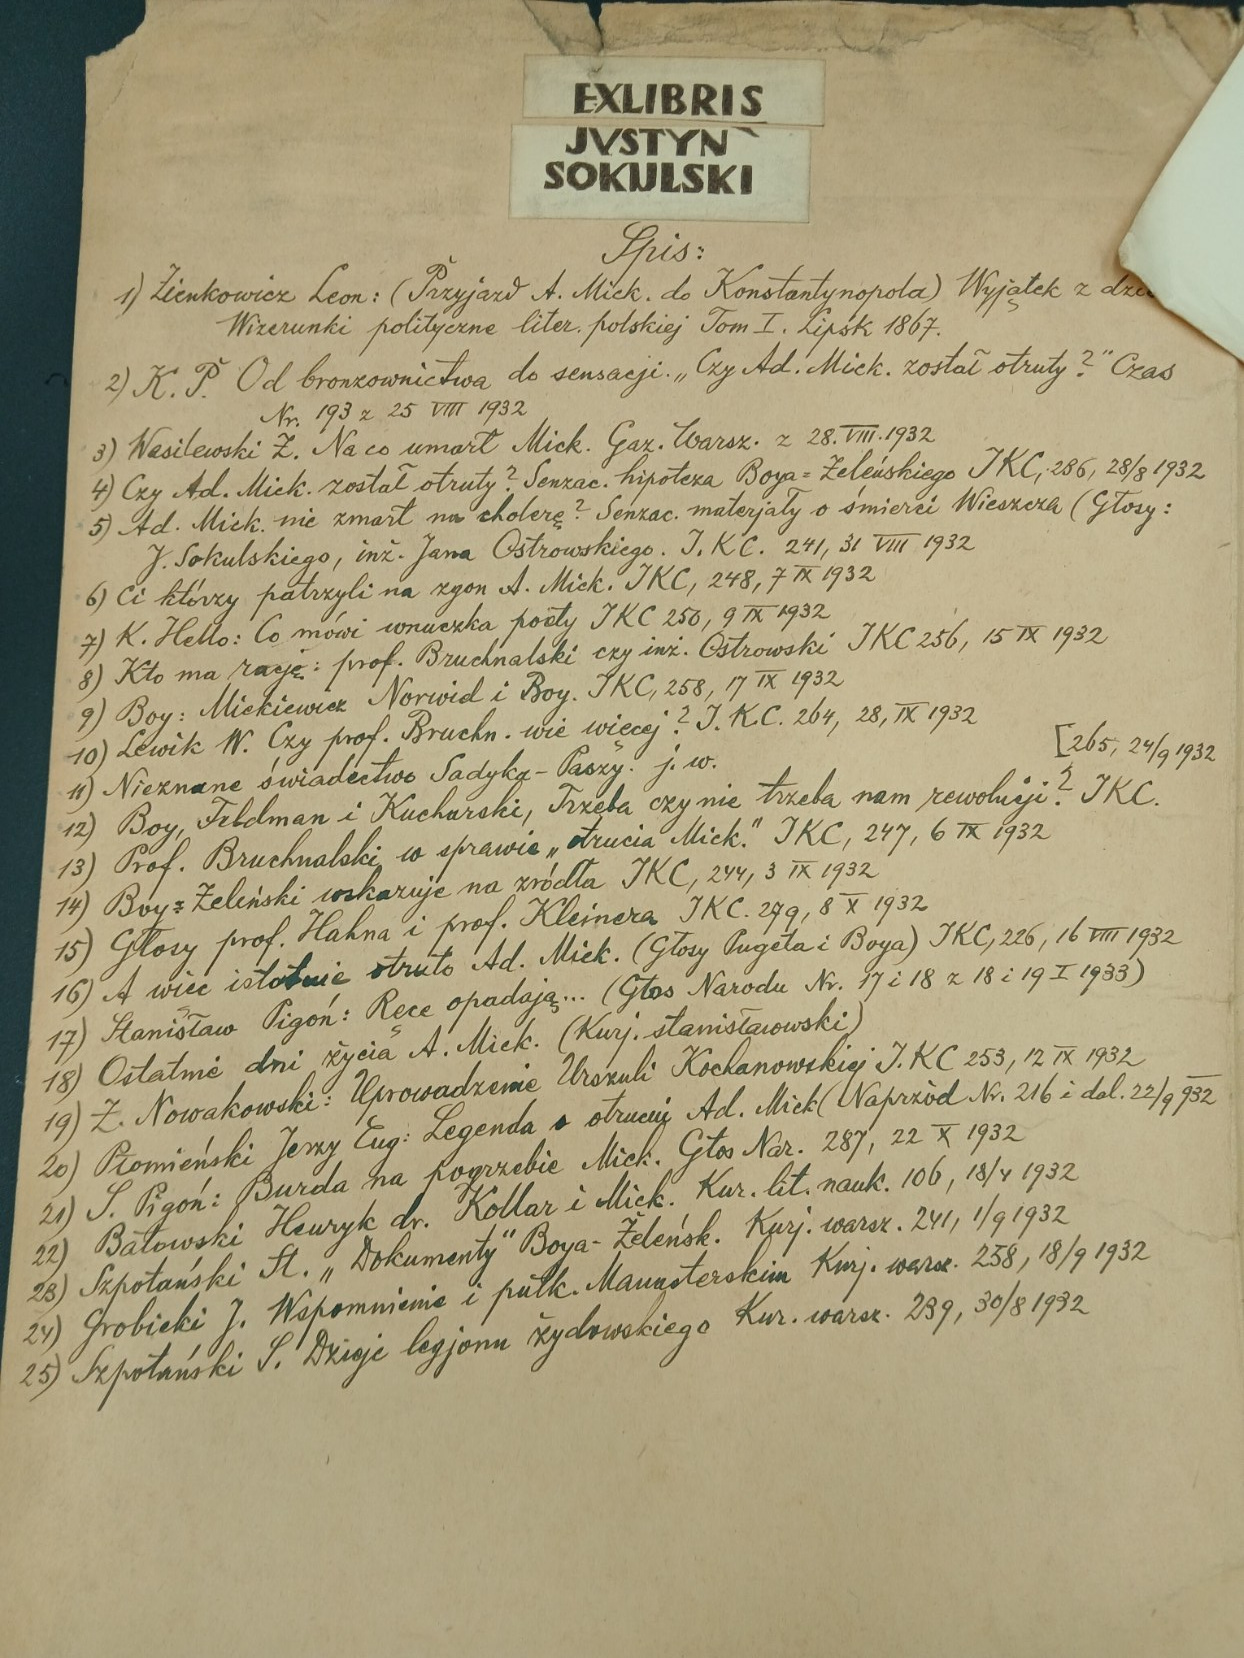 EXLIBRIS
JVSTYN
SOKULSKI
Spis:
1) Zienkowicz Leon: (Przyjazd A. Mick. do Konstantynopola) Wyjątek z
Wizerunki polityczne liter. polskiej Tom I. Lipsk 1867.
2) K. P. Od bronzownictwa do sensacji. „Czy Ad. Mick. został otruty?" Czas
Nr. 193 z 25 VIII 1932
3) Wasilewski Z. Na co umarł Mick. Gaz. Warsz. z 28. VIII. 1932
4) Czy Ad. Mick. został otruty? Senzac. hipoteza Boya=Żeleńskiego IKC, 286, 28/8 1932
5) Ad. Mick. nie zmarł na cholerę? Senzac. materjały o śmierci Wieszcza (Głosy:
J. Sokulskiego, inż. Jana Ostrowskiego. I. KC. 241, 31 VIII 1932
6) Ci którzy patrzyli na zgon A. Mick. IKC, 248, 7 IX 1932
7) K. Hello: Co mówi wnuczka poety IKC 250, 9 IX 1932
8) Kto ma rację: prof. Bruchnalski czy inż. Ostrowski IKC 256, 15 IX 1932
9) Boy: Mickiewicz Norwid i Boy. IKC, 258, 17 IX 1932
10) Lewik W. Czy prof. Bruchn. wie więcej? I. K.C. 264, 28, IX 1932
11) Nieznane świadectwo Sadyka-Paszy. j. w. [265, 24/9 1932
12) Boy, Feldman i Kucharski, Trzeba czy nie trzeba nam rewolucji? IKC.
13) Prof. Bruchnalski w sprawie „otrucia Mick." IKC, 247, 6 IX 1932
14) Boy=Żeleński wskazuje na zródła IKC, 244, 3 IX 1932
15) Głosy prof. Hahna i prof. Kleinera IKC. 279, 8 X 1932
16) A więc istotnie otruto Ad. Mick. (Głosy Pugeta i Boya) IKC, 226, 16 VIII 1932
17) Stanisław Pigoń: Ręce opadają... (Głos Narodu Nr. 17 i 18 z 18 i 19 I 1933)
18) Ostatnie dni życia A. Mick. (Kurj. stanisławowski)
19) Z. Nowakowski: Uprowadzenie Urszuli Kochanowskiej I. KC 253, 12 IX 1932
20) Płomieński Jerzy Eug: Legenda o otruciu Ad. Mick (Naprzód Nr. 216 i dal. 22/9 932
21) S. Pigoń: Burda na pogrzebie Mick. Głos Nar. 287, 22 X 1932
22) Batowski Henryk dr. Kollar i Mick. Kur. lit. nauk. 106, 18/4 1932
23) Szpotański St. „Dokumenty" Boya-Żeleńsk. Kurj. warsz. 241, 1/9 1932
24) Grobicki J. Wspomnienie i pułk. Kurj. warsz. 258, 18/9 1932
25) Szpotański S. Dzieje legjonu żydowskiego Kur. warsz. 239, 30/8 1932